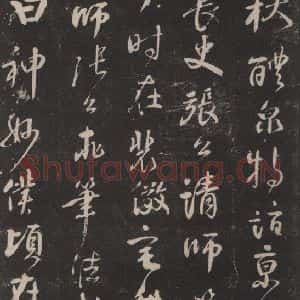 秩醴泉特詣京
長史張公請師
時在裴儆宅
師張公求筆法
曰神妙僕頃在
Shufawang.CN